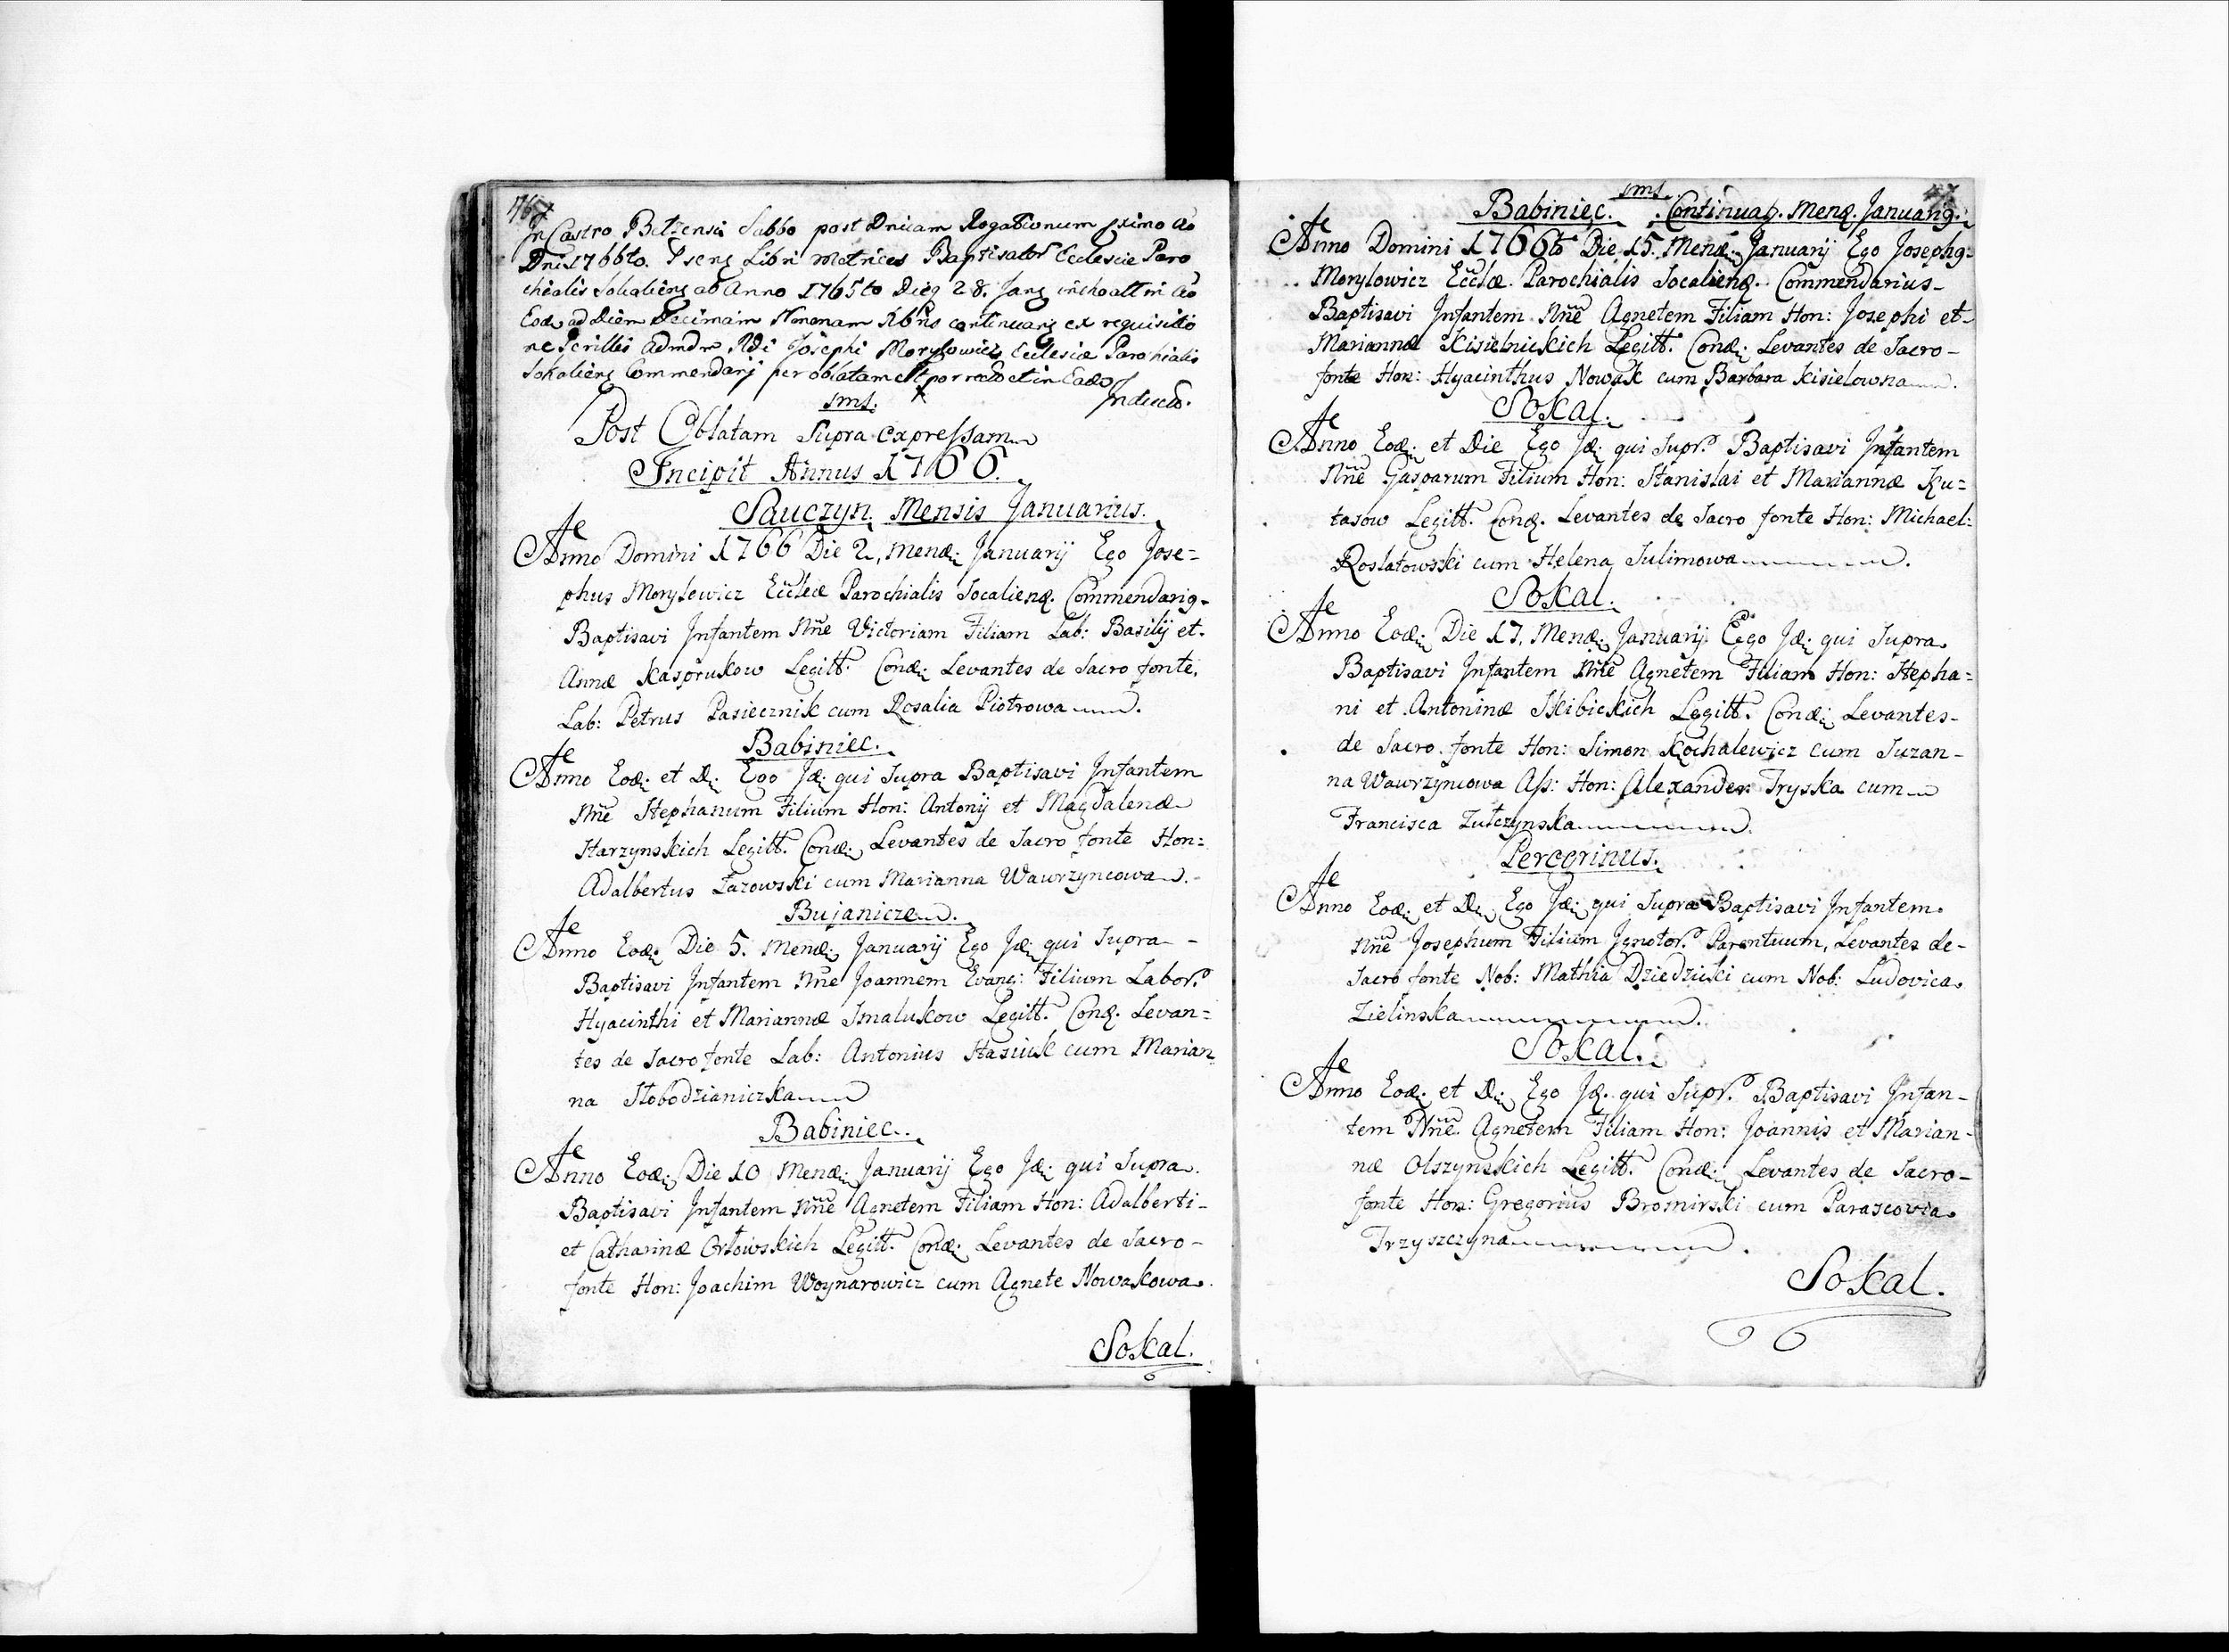 In Castro Belzensi Sabbo post Dnicam Rogationum pximo Ao
Dni 1766to. Psens Libri Metrices Baptisator Ecclesiæ Paro
chialis Sokaliens ab Anno 1765to Die 28. Jan inchoatt in Ao
Eod ad Diem Decimam Nonam Xbris continuans ex requisitio
ne Perillis admdm Rdi Josephi Morylowicz Ecclesiæ Parochialis
Sokaliens Commendarj per oblatam est porrecto et in Eado
Inducto.
sms.
Post Oblatam Supra expressam
Incipit Annus 1766.
Sauczyn. Mensis Januarius.
Anno Domini 1766 Die 2, Mensæ: Januarij Ego Jose=
phus Morylowicz Eccleæ Parochialis Socalienq. Commendariq.
Baptisavi Infantem Nñe Victoriam Filiam Lab: Basilij et.
Annæ Kasprukow Legitt. Conæ: Levantes de Sacro fonte.
Lab: Petrus Pasiecznik cum Rosalia Piotrowa.
Babiniec.
Anno Eoæ: et D: Ego Jæ: qui Supra Baptisavi Infantem
Nñe Stephanum Filium Hon: Antonij et Magdalenæ
Starzynskich Legitt. Conæ: Levantes de Sacro fonte Hon:
Adalbertus Łazowski cum Marianna Wawrzyncowa.
Bujanicze.
Anno Eoæ: Die 5. Menæ: Januarij Ego Jæ: qui Supra -
Baptisavi Infantem Nñe Joannem Evang: Filium Labor.
Hyacinthi et Mariannæ Smalukow Legitt. Conq. Levan=
tes de Sacro fonte Lab: Antonius Stasiuk cum Marian
na Słobodzianiczka
Babiniec.
Anno Eoæ: Die 10 Menæ: Januarij Ego Jæ: qui Supra.
Baptisavi Infantem Nñe Agnetem Filiam Hon: Adalberti -
et Catharinæ Orłowskich Legitt. Conæ: Levantes de Sacro -
fonte Hon: Joachim Woynarowicz cum Agnete Nowakowa.
Sokal.
sms.
Babiniec. Continuaq. Menq. Januariq.
Anno Domini 1766to Die 15. Menæ: Januarij Ego Josephq.
Morylowicz Ecclæ. Parochialis Socalienq. Commendarius -
Baptisavi Infantem Nñe Agnetem Filiam Hon: Josephi et -
Mariannæ Kisielnickich Legitt. Conæ: Levantes de Sacro -
fonte Hon: Hyacinthus Nowak cum Barbara Kisielowna.
Sokal.
Anno Eoæ: et Die Ego Jæ: qui Supr. Baptisavi Infantem
Nñe Gasparum Filium Hon: Stanislai et Mariannæ Ku=
tasow Legitt. Conq. Levantes de Sacro fonte Hon: Michael:
Roslatowski cum Helena Sulimowa.
Sokal.
Anno Eoæ: Die 17. Menæ: Januarij Ego Jæ: qui Supra
Baptisavi Infantem Nñe Agnetem Filiam Hon: Stepha=
ni et Antoninæ Skibickich Legitt. Conæ: Levantes -
de Sacro fonte Hon: Simon Kochalewicz cum Suzan -
na Wawrzyncowa Ass: Hon: Alexander Tryska cum
Francisca Zulczynska.
Peregrinus.
Anno Eoæ: et D: Ego Jæ: qui Supra Baptisavi Infantem.
Nñe Josephum Filium Ignotor. Parentuum, Levantes de -
Sacro fonte Nob: Mathia Dziedzicki cum Nob: Ludovica
Zielinska.
Sokal.
Anno Eoæ: et D: Ego Jæ. qui Supr. Baptisavi Infan -
tem Nñe Agnetem Filiam Hon: Joannis et Marian -
næ Olszynskich Legitt. Conæ: Levantes de Sacro -
fonte Hon: Gregorius Bromirski cum Parascovia
Trzyszczyna.
Sokal.